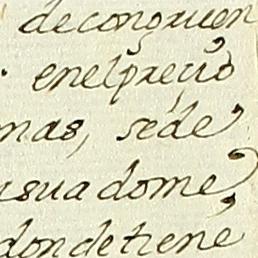 de congruen
en el precio
mas, se de
usua dome,
donde tiene